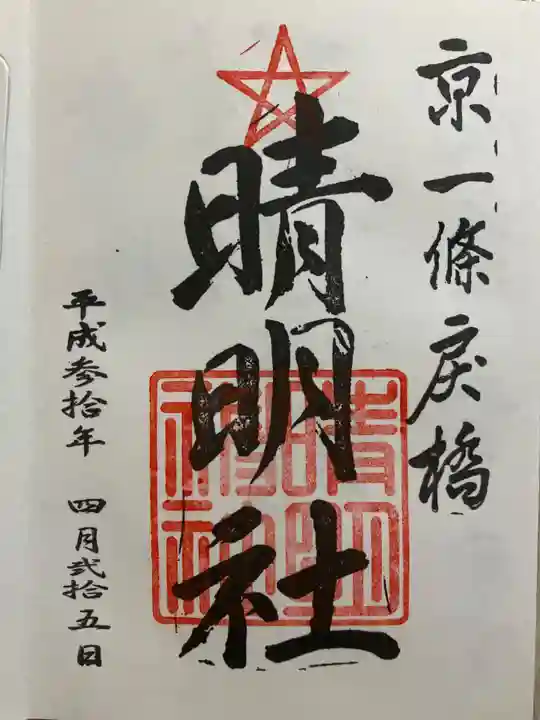 京一條戻橋
晴明社
晴明神社
平成参拾年 四月弐拾五日